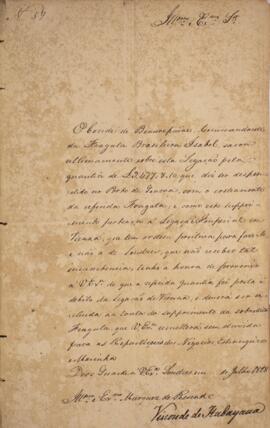 Nº 54
Illmo. Exmo. Sr.
O Conde de Beaurepaire, Commandante
da Fragata Brasileira Isabel, sacou
ultimamente sobre esta Legação pela
quantia de £2.477. que diz ter despen
dido no Porto de com o costeamento
da referida Fragata; e como este suppri
mento pertença á Legação Imperial em
Vienna, que tem ordem positiva para fazer-lhe
e não a de Londres, que não recebeu tal
incumbencia, tenho a honra de
a V. Exa. que a referida quantia foi posta a
debito da Legação de Vienna, e deverá ser in
cluida na conta do supprimento da sobredita
Fragata, que V. Exa. remetterá sem duvida
para as Repartiçoens dos Negocios Estrangeiros e
Marinha.
Deos Guarde a V. Exa. Londres em de Julho 1828
Illmo. Exmo. Marquez de Rezende
Visconde de Itabayana